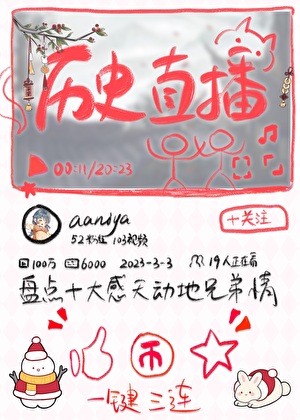 历史直播
00:11/20:23
aaniya
52粉丝 103视频
+关注
100万 6000 2023-3-3 19人正在看
盘点十大感天动地兄弟情
币
一键三连